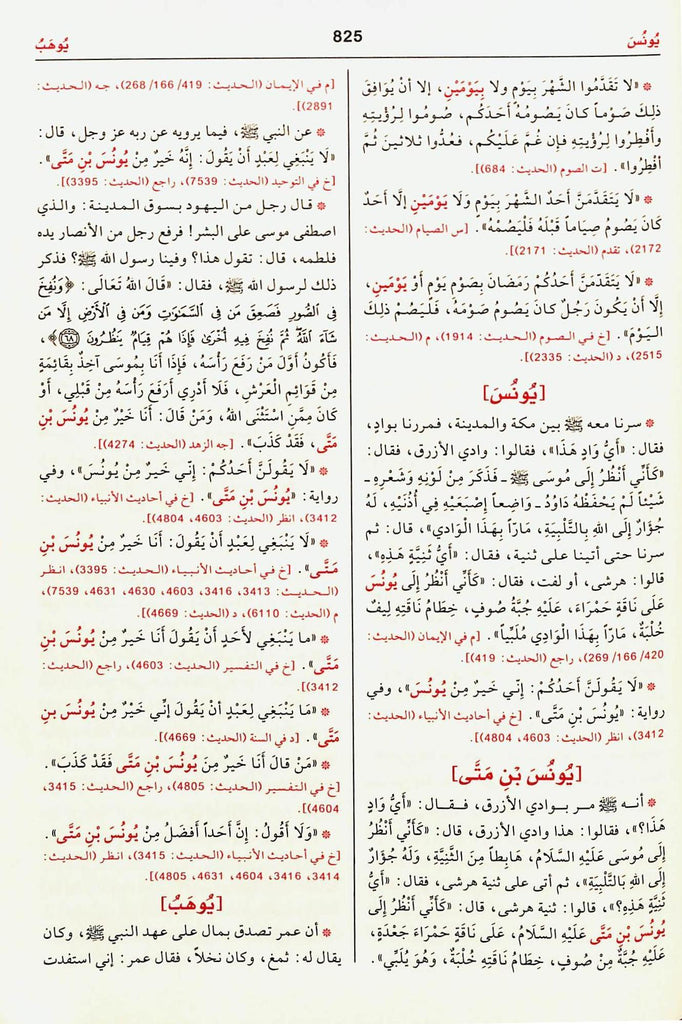 يُونُسَ
825
يُوهَبُ
* «لا تَقَدَّمُوا الشَّهْرَ بِيَوْمٍ ولا بِيَوْمَيْنِ، إلا أنْ يُوَافِقَ
ذلِكَ صَوْماً كانَ يَصُومُهُ أحَدُكُم، صُومُوا لِرُؤْيَتِهِ
وأفْطِرُوا لِرُؤْيَتِهِ فإن غُمَّ عَلَيْكُم، فَعُدُّوا ثلاثينَ ثُمَّ
أفْطِرُوا». [ت الصوم (الحديث: 684)].
* «لَا يَتَقَدَّمَنَّ أَحَدٌ الشَّهْرَ بِيَوْمٍ وَلَا يَوْمَيْنِ إلَّا أَحَدٌ
كَانَ يَصُومُ صِيَاماً قَبْلَهُ فَلْيَصُمْهُ». [س الصيام (الحديث:
2172)، تقدم (الحديث: 2171)].
* «لَا يَتَقَدَّمَنَّ أَحَدُكُمْ رَمَضَانَ بِصَوْمِ يَوْمٍ أَوْ يَوْمَيْنِ،
إلَّا أَنْ يَكُونَ رَجُلٌ كانَ يَصُومُ صَوْمَهُ، فَلْيَصُمْ ذلِكَ
الْيَوْمَ». [خ في الصوم (الحديث: 1914)، م (الحديث:
2515)، د (الحديث: 2335)].
[يُونُسَ]
* سرنا معه ﷺ بين مكة والمدينة، فمررنا بوادٍ،
فقال: «أَيُّ وَادٍ هَذَا»، فقالوا: وادي الأزرق، فقال:
«كَأَنِّي أَنْظُرُ إِلَى مُوسَى ﷺ ـ فَذَكَرَ مِنْ لَوْنِهِ وَشَعْرِهِ ـ
شَيْئاً لَمْ يَحْفَظْهُ دَاوُدُ ـ وَاضِعاً إِصْبَعَيْهِ فِي أُذُنَيْهِ، لَهُ
جُؤَارٌ إِلَى اللهِ بِالتَّلْبِيَةِ، مَارّاً بِهَذَا الْوَادِي»، قال: ثم
سرنا حتى أتينا على ثنية، فقال: «أَيُّ ثَنِيَّةٍ هَذِهِ»،
قالوا: هرشى، أو لفت، فقال: «كَأَنِّي أَنْظُرُ إِلَى يُونُسَ
عَلَى نَاقَةٍ حَمْرَاءَ، عَلَيْهِ جُبَّةُ صُوفٍ، خِطَامُ نَاقَتِهِ لِيفٌ
خُلْبَةٌ، مَارّاً بِهَذَا الْوَادِي مُلَبِّياً». [م في الإيمان (الحديث:
420/ 166/ 269)، راجع (الحديث: 419)].
* «لَا يَقُولَنَّ أَحَدُكُمْ: إِنِّي خَيرٌ مِنْ يُونُسَ»، وفي
رواية: «يُونُسَ بْنِ مَتَّى». [خ في أحاديث الأنبياء (الحديث:
3412)، انظر (الحديث: 4603، 4804)].
[يُونُسَ بْنِ مَتَّى]
* أنه ﷺ مر بوادي الأزرق، فقال: «أَيُّ وَادٍ
هَذَا؟»، فقالوا: هذا وادي الأزرق، قال: «كَأَنِّي أَنْظُرُ
إِلَى مُوسَى عَلَيْهِ السَّلَامُ، هَابِطاً مِنَ الثَّنِيَّةِ، وَلَهُ جُؤَارٌ
إِلَى اللهِ بَالتَّلْبِيَةِ»، ثم أتى على ثنية هرشى، فقال: «أَيُّ
ثَنِيَّةٍ هَذِهِ؟»، قالوا: ثنية هرشى، قال: «كَأَنِّي أَنْظُرُ إِلَى
يُونُسَ بْنِ مَتَّى عَلَيْهِ السَّلَامُ، عَلَى نَاقَةٍ حَمْرَاءَ جَعْدَةٍ،
عَلَيْهِ جُبَّةٌ مِنْ صُوفٍ، خِطَامُ نَاقَتِهِ خُلْبَةٌ، وَهُوَ يُلَبِّي».
[م في الإيمان (الحديث: 419/ 166/ 268)، جه (الحديث:
2891)].
* عن النبي ﷺ، فيما يرويه عن ربه عز وجل، قال:
«لَا يَنْبَغِي لِعَبْدٍ أَنْ يَقُولَ: إِنَّهُ خَيرٌ مِنْ يُونُسَ بْنِ مَتَّى».
[خ في التوحيد (الحديث: 7539)، راجع (الحديث: 3395)].
* قال رجل من اليهود بسوق المدينة: والذي
اصطفى موسى على البشر! فرفع رجل من الأنصار يده
فلطمه، قال: تقول هذا؟ وفينا رسول الله ﷺ؟ فذكر
ذلك لرسول الله ﷺ، فقال: «قَالَ اللهُ تَعَالَى: ﴿وَنُفِخَ
فِي الصُّورِ فَصَعِقَ مَن فِي السَّمَٰوَٰتِ وَمَن فِي الْأَرْضِ إِلَّا مَن
شَآءَ اللَّهُ ثُمَّ نُفِخَ فِيهِ أُخْرَىٰ فَإِذَا هُمْ قِيَامٌ يَنظُرُونَ ٦٨﴾،
فَأَكُونُ أَوَّلَ مَنْ رَفَعَ رَأْسَهُ، فَإِذَا أَنَا بِمُوسَى آخِذٌ بِقَائِمَةٍ
مِنْ قَوَائِمِ الْعَرْشِ، فَلَا أَدْرِي أَرَفَعَ رَأْسَهُ مِنْ قَبْلِي، أَوْ
كَانَ مِمَّنِ اسْتَثْنَى اللهُ، وَمَنْ قَالَ: أَنَا خَيْرٌ مِنْ يُونُسَ بْنِ
مَتَّى، فَقَدْ كَذَبَ». [جه الزهد (الحديث: 4274)].
* «لَا يَقُولَنَّ أَحَدُكُمْ: إِنِّي خَيرٌ مِنْ يُونُسَ»، وفي
رواية: «يُونُسَ بْنِ مَتَّى». [خ في أحاديث الأنبياء (الحديث:
3412)، انظر (الحديث: 4603، 4804)].
* «لَا يَنْبَغِي لِعَبْدٍ أَنْ يَقُولَ: أَنَا خَيرٌ مِنْ يُونُسَ بْنِ
مَتَّى». [خ في أحاديث الأنبياء (الحديث: 3395)، انظر
(الحديث: 3413، 3416، 4603، 4630، 4631، 7539)،
م (الحديث: 6110)، د (الحديث: 4669)].
* «ما يَنْبَغِي لأَحَدٍ أَنْ يَقُولَ أَنَا خَيرٌ مِنْ يُونُسَ بْنِ
مَتَّى». [خ في التفسير (الحديث: 4603)، راجع (الحديث:
3412)].
* «مَا يَنْبَغِي لِعَبْدٍ أَنْ يَقُولَ إِنِّي خَيْرٌ مِنْ يُونُسَ بْنِ
مَتَّى». [د في السنة (الحديث: 4669)].
* «مَنْ قالَ أَنَا خَيرٌ مِنَ يُونُسَ بْنِ مَتَّى فَقَدْ كَذَبَ».
[خ في التفسير (الحديث: 4805)، راجع (الحديث: 3415،
4604)].
* «وَلَا أَقُولُ: إِنَّ أَحَداً أَفضَلُ مِنْ يُونُسَ بْنِ مَتَّى».
[خ في أحاديث الأنبياء (الحديث: 3415)، انظر (الحديث:
3414، 3416، 4604، 4631، 4805)].
[يُوهَبُ]
* أن عمر تصدق بمال على عهد النبي ﷺ، وكان
يقال له: ثمغ، وكان نخلاً، فقال عمر: إني استفدت